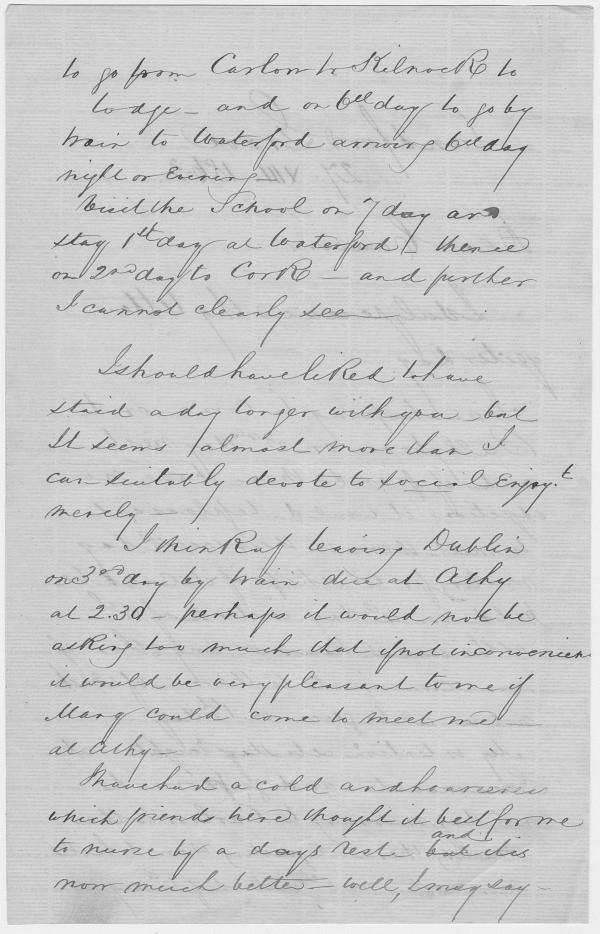 to go from Carlow to Kilnock to
lodge – and on 6th day to go by
train to Waterford arriving 6th day
night or Evening –
Visit the School on 7 day and
stay 1st day at Waterford – thence
on 2nd day to Cork – and further
I cannot clearly see –
I should have liked to have
staid a day longer with you but
It seems almost more than I
can suitably devote to social Enjoy.t
merely
I think of leaving Dublin
on 3rd day by train due at Athy
at 2.30 – perhaps it would not be
asking too much that if not inconvenient
it would be very pleasant to me if
Mary could come to meet me
at Athy –
I have had a cold and hoarseness
which friends here thought it best for me
to nurse by a days rest but and it is
now much better – well, I may say –